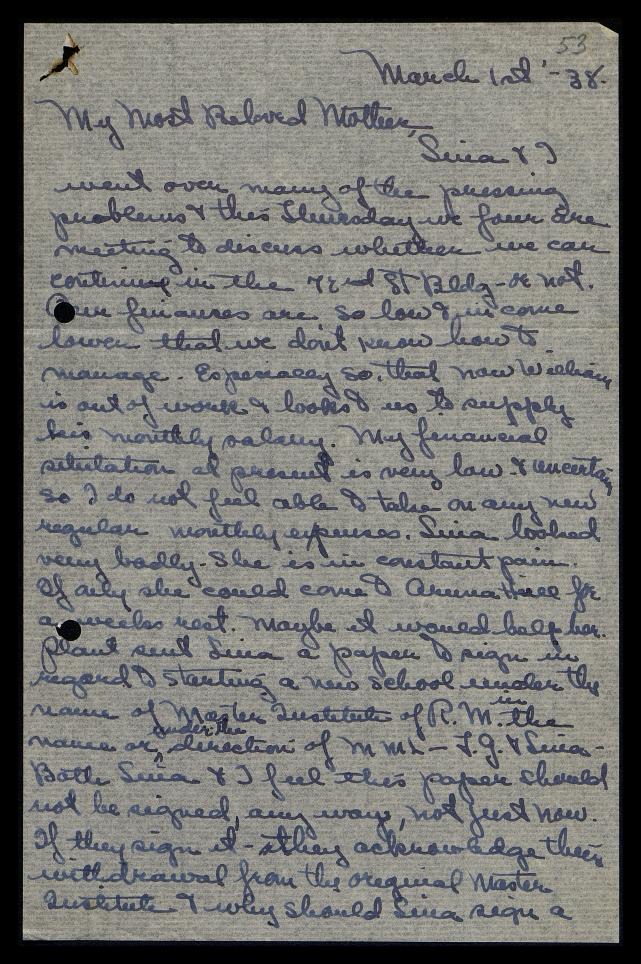 53
March 1st '-38.
My Most Beloved Mother,
Sina & I
went over many of the pressing
problems & this Thursday we four are
meeting to discuss whether we can
continue in the 72nd St Bldg - or not.
Our finances are so low & income
lower that we don't know how to
manage. Especially so, that now William
is out of work & looks to us to supply
his monthly salary. My financial
situation at present is very low & uncertain
so I do not feel able to take on any new
regular monthly expenses. Sina looked
very badly. She is in constant pain.
If only she could come to Aruna Hill for
a weeks rest. Maybe it would help her.
Plaut sent Sina a paper to sign in
regard to starting a new school under the
name of Master Institute of R. M. in the
name or under the direction of M M L - F.G. & Sina -
Both Sina & I feel this paper should
not be signed, any way, not just now.
If they sign it - they acknowledge their
withdrawal from the original Master
Institute & why should Sina sign a